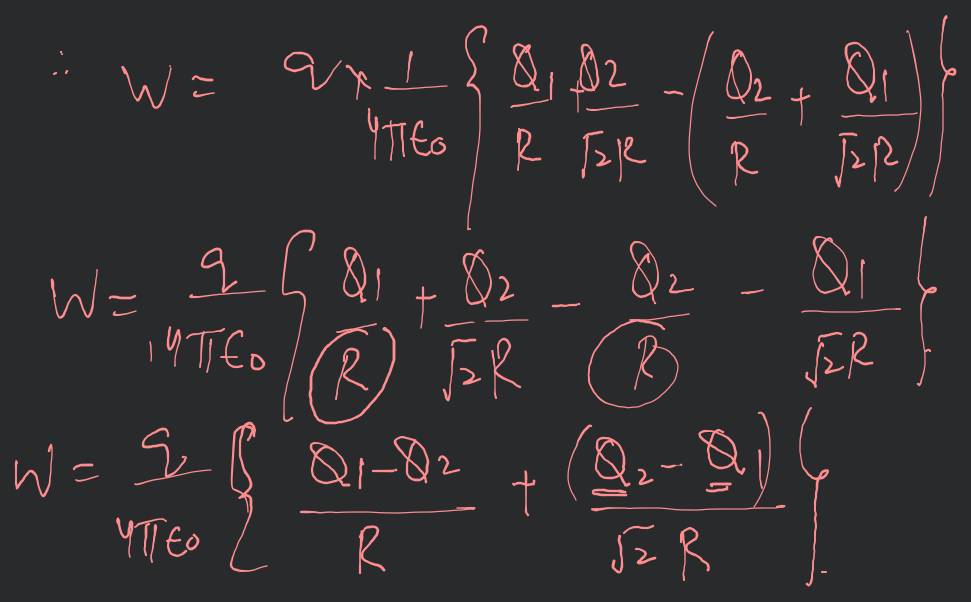 ∴ W = q × 1/4πε₀ { Q₁/R + Q₂/√2R − ( Q₂/R + Q₁/√2R ) }
W = q/4πε₀ { Q₁/R + Q₂/√2R − Q₂/R − Q₁/√2R }
W = q/4πε₀ { Q₁−Q₂/R + (Q₂−Q₁)/√2 R }